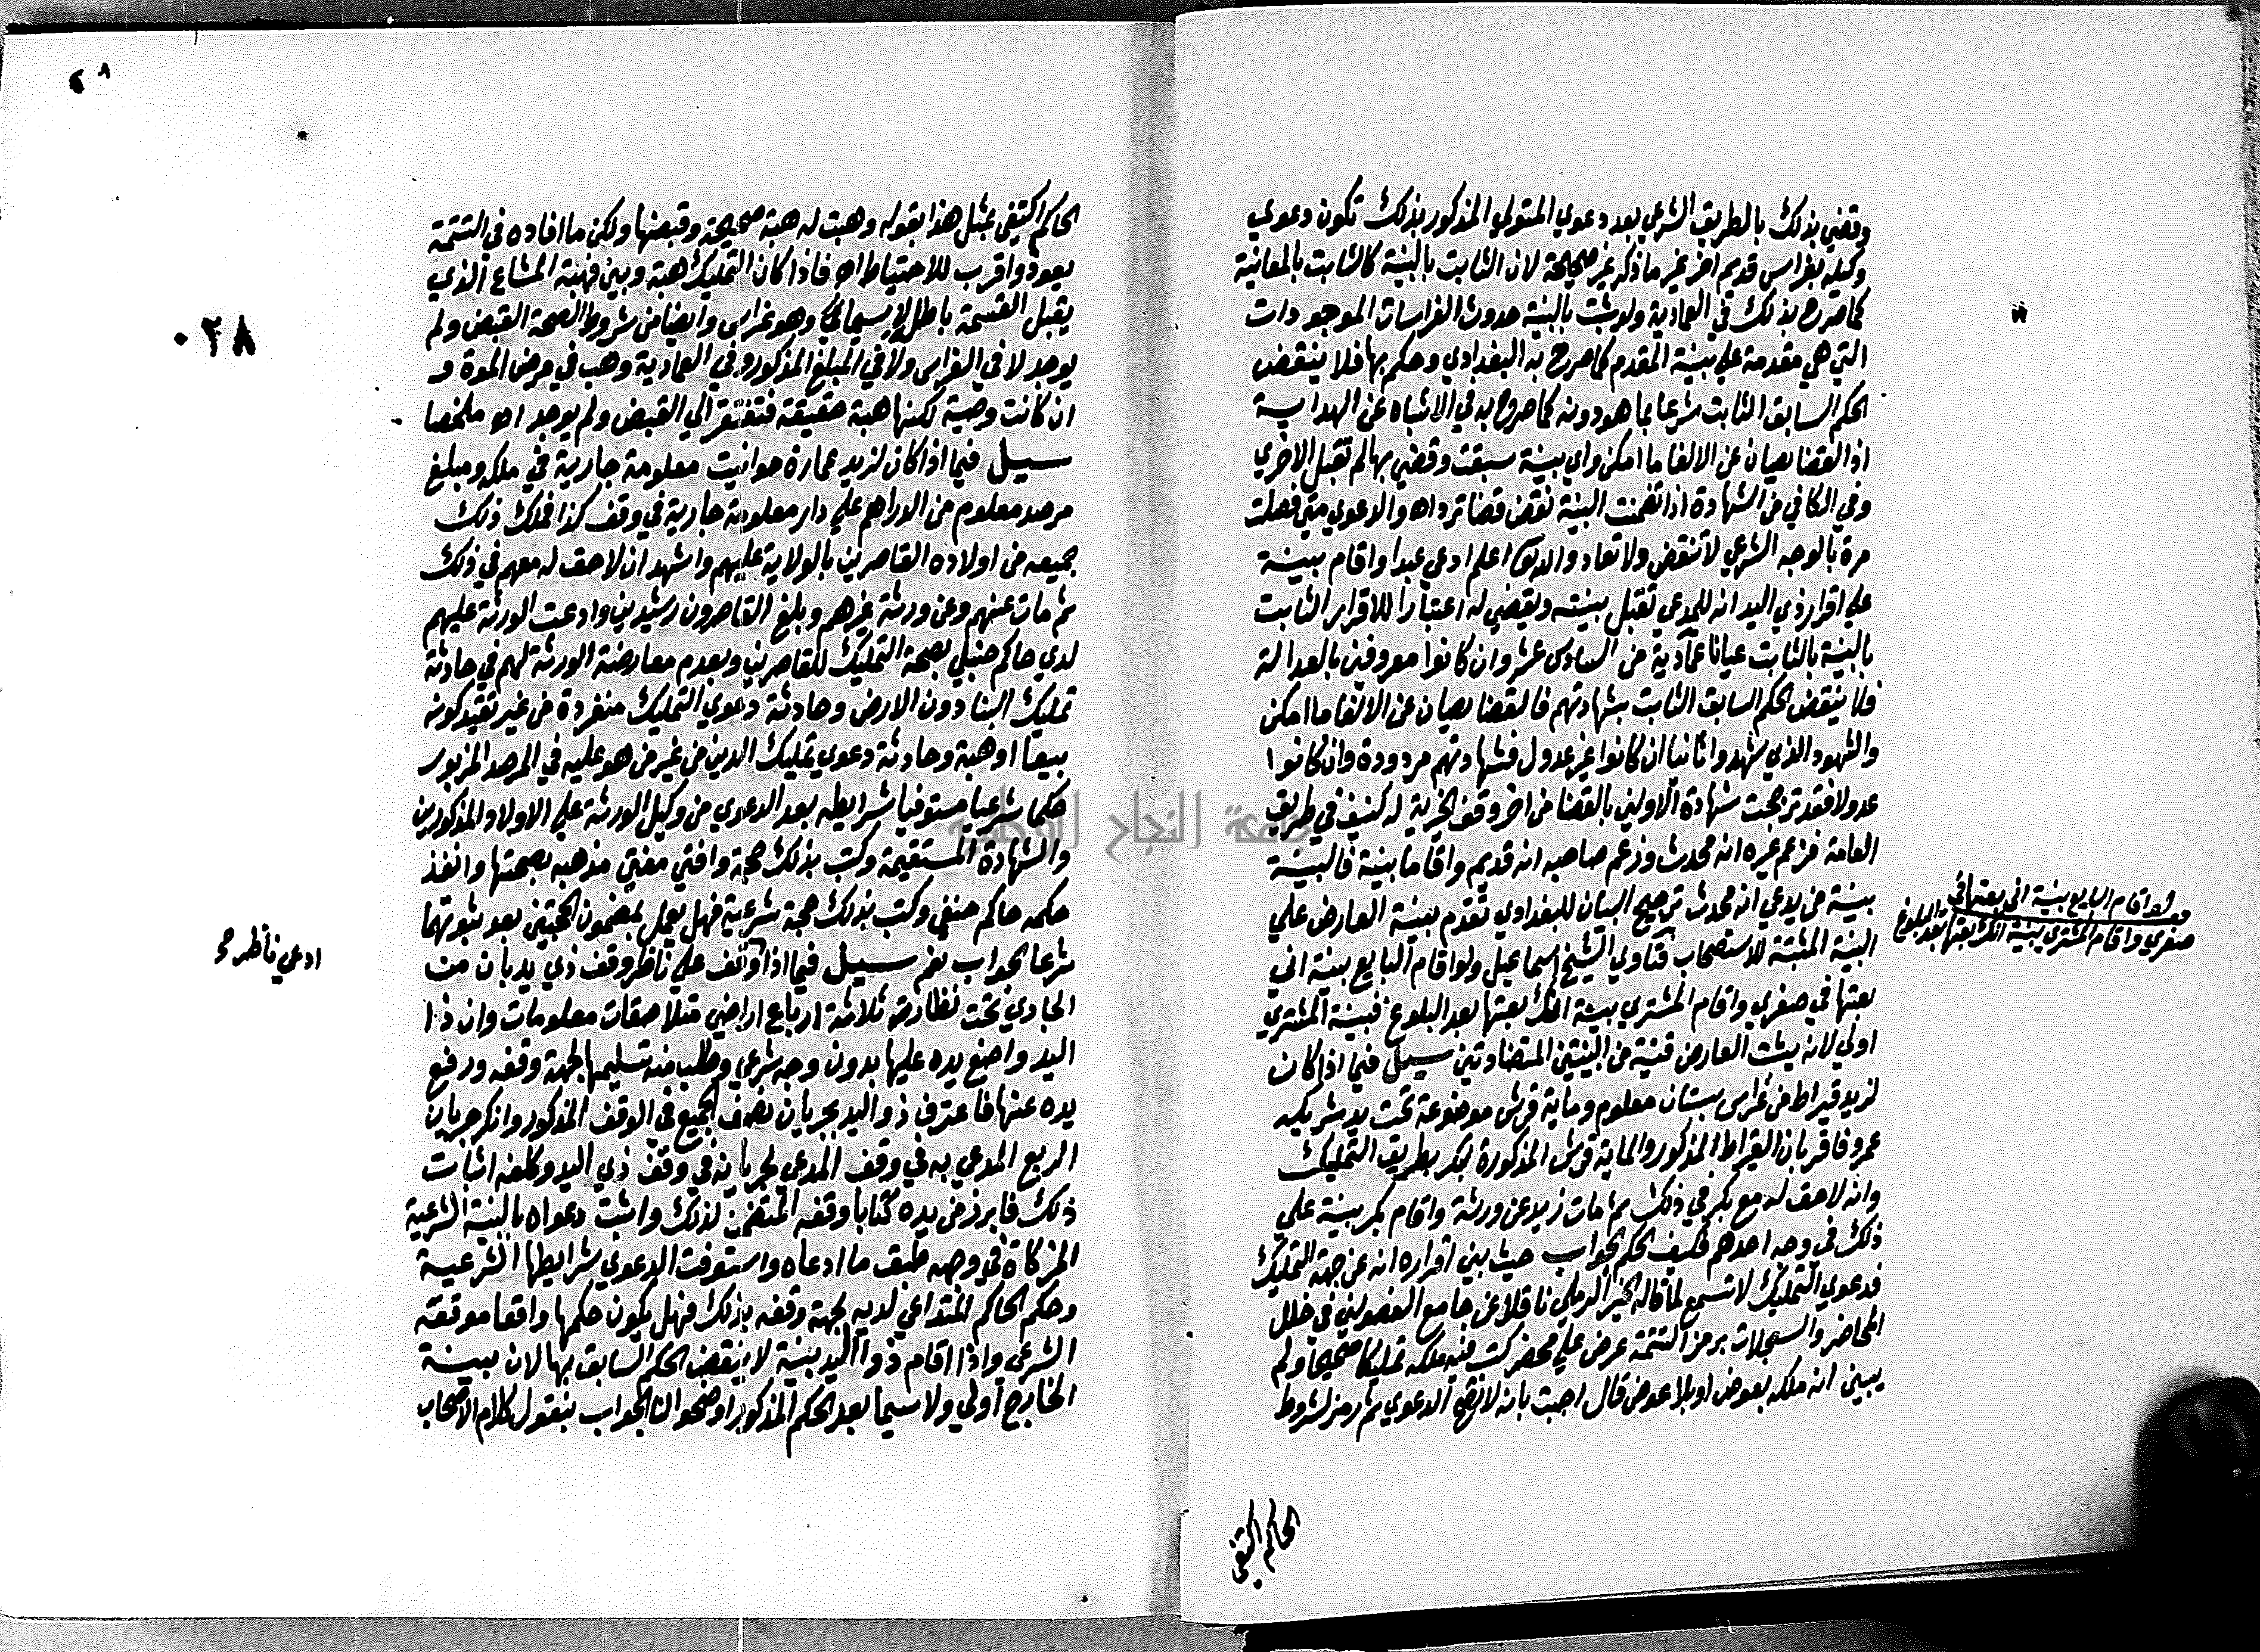 وقضي بذلك بالطريق الشرعي بعد دعوي المتولي المذكور بذلك تكون دعوي
وكيله بغراس قديم اخر غير ما ذكر غير صحيحة لان الثابت بالبينة كالثابت بالمعاينة
كما صرح بذلك في العمادية ولو ثبت بالبينة حدوث الغراسات الموجودات
التي هي مقدمة علي بينة المقدم كما صرح به البغدادي وحكم بها فلا ينقض
الحكم السابق الثابت شرعا بما هو دونه كما صرح به في الاشباه عن الهداية
اذ القضا يصان عن الالغا ما امكن واي بينة سبقت وقضي بها لم تقبل الاخري
وفي الكافي من الشهادة اذا تضمنت البينة نقض قضا ترد اه والدعوي متي فصلت
مرة بالوجه الشرعي لا تنقض ولا تعاد والله تعالى اعلم ادعي عبدا واقام بينة
علي اقرار ذي اليد انه للمدعي تقبل بينته ويقضي له اعتبارا للاقرار الثابت
بالبينة بالثابت عيانا عمادية من السادس عشر وان كانوا معروفين بالعدالة
فلا ينقض الحكم السابق الثابت بشهادتهم فالقضا يصان عن الالغا ما امكن
والشهود الذي شهدوا ثانيا ان كانوا غير عدول فشهادتهم مردودة وان كانوا
عدولا فقد ترجحت شهادة الاولين بالقضا من اخر وقف الخرية له كنيف في طريق
العامة فزعم غيره انه محدث وزعم صاحبه انه قديم واقاما بينة فالبينة
بينة من يدعي انه محدث ترجيح البينات للبغدادي تقدم بينة العارض علي
البينة المثبتة للاستصحاب فتاوي الشيخ اسماعيل ولو اقام البايع بينة اني
بعتها في صغري واقام المشتري بينة انك بعتها بعد البلوغ فبينة المشتري
اولي لانه يثبت العارض قنية من البينتين المتضادتين سيل فيما اذا كان
لزيد قيراط من غراس بستان معلوم وماية قرش موضوعة تحت يد شريكه
عمرو فاقر بان القيراط المذكور والماية قرش المذكورة لبكر بطريق التمليك
وانه لا حق له مع بكر في ذلك ثم مات زيد عن ورثة واقام بكر بينة علي
ذلك في وجه احدهم فكيف الحكم الجواب حيث بني اقراره انه عن جهة التمليك
فدعوي التمليك لا تسمع لما قاله الخير الرملي ناقلا عن جامع الفصولين في خلل
المحاضر والسجلات برمز التتمة عرض علي محضر كتب فيه ملكه تمليكا صحيحا ولم
يبين انه ملكه بعوض او بلا عوض قال اجبت بانه لا تصح الدعوي ثم رمز لشروط
الحاكم اكتفي
ولو اقام البايع بينة اني بعتها في
صغري واقام المشتري بينة انك بعتها بعد البلوغ
الحاكم اكتفي بمثل هذا بقوله وهبت له هبة صحيحة وقبضها ولكن ما افاده في التتمة
اجود واقرب للاحتياط اه فاذا كان التمليك هبة وبين فهبة المشاع الذي
يقبل القسمة باطل لاسيما وهو غراس وايضا من شروط الصحة القبض ولم
يوجد لا في الغراس ولا في المبلغ المذكور وفي العمادية وهب في مرض الموة
ان كانت وصية لكنها هبة حقيقة فتفتقر الي القبض ولم يوجد اه ملخصا
سيل فيما اذا كان لزيد عمارة حوانيت معلومة جارية في ملكه ومبلغ
مرصد معلوم من الدراهم علي دار معلومة جارية في وقف كذا فملك ذلك
جميعه من اولاده القاصرين بالولاية عليهم واشهد ان لا حق له معهم في ذلك
ثم مات عنهم وعن ورثة غيرهم وبلغ القاصرون رشيدين وادعت الورثة عليهم
لدي حاكم حنبلي بصحة التمليك للقاصرين وبعدم معارضة الورثة لهم في حادثة
تمليك البنا دون الارض وحادثة دعوي التمليك منفردة من غير تقييد كونه
بيعا او هبة وحادثة دعوي تمليك الدين من غير من هو عليه في المرصد المزبور
حكما شرعيا مستوفيا شرايطه بعد الدعوي من وكيل الورثة علي الاولاد المذكورين
والشهادة المستقيمة وكتب بذلك حجة وافتي مفتي مذهبه بصحتها وانفذ
حكمه حاكم حنفي وكتب بذلك حجة شرعية فهل يعمل بمضمون الحجتين بعد ثبوتهما
شرعا الجواب نعم سيل فيما اذا ناظر وقف علي ناظر وقف ذي يد بان من
الجاري تحت نظارته ثلاثة ارباع اراضي متلاصقات معلومات وان ذا
اليد واضع يده عليها بدون وجه شرعي وطلب منه تسليمها لجهة وقفه ورفع
يده عنها فاعترف ذو اليد بجريان نصف الجميع في الوقف المذكور وانكر جريان
الربع المدعي به في وقف المدعي لجريانه في وقف ذي اليد وكلفه اثبات
ذلك فابرز من يده كتاب وقفه المتضمن لذلك واثبت دعواه بالبينة الشرعية
المزكاة في وجهه طبق ما ادعاه واستوفت الدعوي شرايطها الشرعية
وحكم الحاكم المتداعي لديه لجهة وقفه بذلك فهل يكون حكمها واقعا موقعه
الشرعي واذا اقام ذو اليد بينة لا ينقض الحكم السابق بها لان بينة
الخارج اولي ولا سيما بعد الحكم المذكور اوضحوا لنا الجواب بنقول كلام الاصحاب
ادعي ناظر
٠٢٨
جامعة النجاح الوطنية